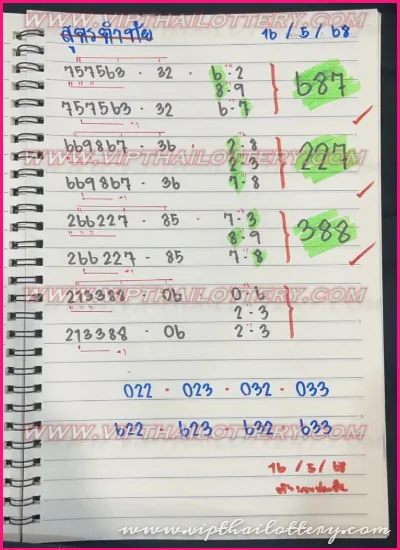 WWW.VIPTHAILOTTERY.COM
สูตรทำทัย 16 / 5 / 68
757563 · 32 · 6 · 2
8 · 9
687
757563 · 32 6 · 7
WWW.VIPTHAILOTTERY.COM
669867 · 36 · 2 · 8
2 · 3
227
669867 · 36 7 · 8
266227 · 85 · 7 · 3
8 · 9
388
266227 · 85 7 · 8
WWW.VIPTHAILOTTERY.COM
213388 · 06 0 · 6
2 · 3
213388 · 06 2 · 3
022 · 023 · 032 · 033
WWW.VIPTHAILOTTERY.COM
622 · 623 · 632 · 633
16 / 5 / 68
www.vipthailottery.com